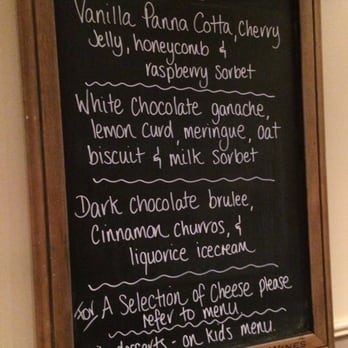 Vanilla Panna Cotta, Cherry
Jelly, honeycomb &
raspberry sorbet
White chocolate ganache,
lemon curd, meringue, oat
biscuit & milk sorbet
Dark chocolate brulee,
Cinnamon churros, &
liquorice icecream
For A Selection of Cheese please
refer to menu
desserts - on kids menu.
WINES